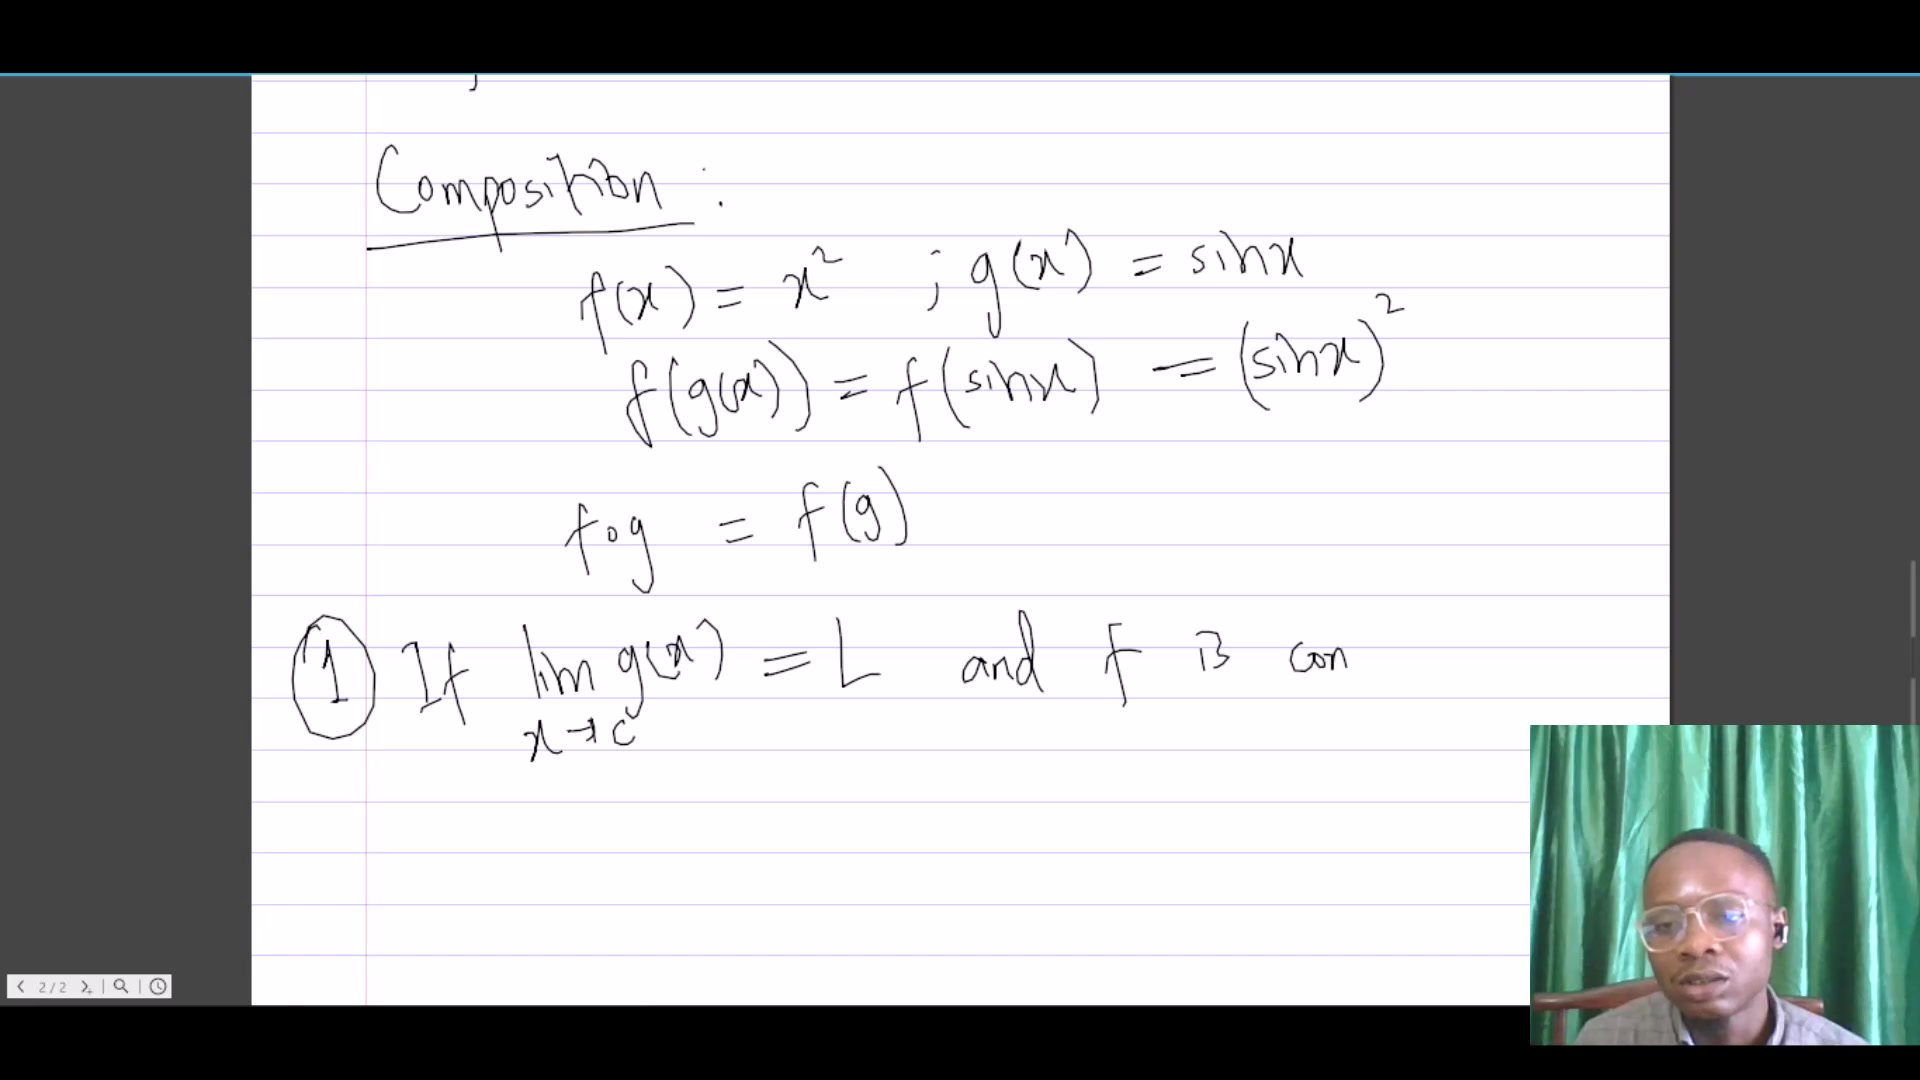 Composition :
f(x) = x² ; g(x) = sinx
f(g(x)) = f(sinx) = (sinx)²
fog = f(g)
1 If lim g(x) = L and f is con
x→c
2/2